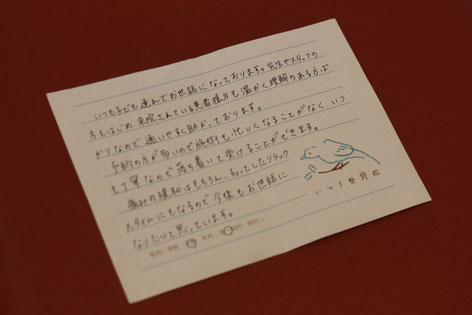 いつも子ども連れでお世話になっております。先生やスタッフの
方をはじめ 来院されている患者様方も 温かく理解のある方ば
かりなので 通いやすく助かっております。
予約の方が多いので施術も忙しくなることがなく、いつ
も丁寧なので落ち着いて受けることができます。
痛みの緩和はもちろん、ちょっとしたリラック
スタイムにもなるので今後もお世話に
なりたいと思っています。
いつき整骨院
性別：男性・女 年代：